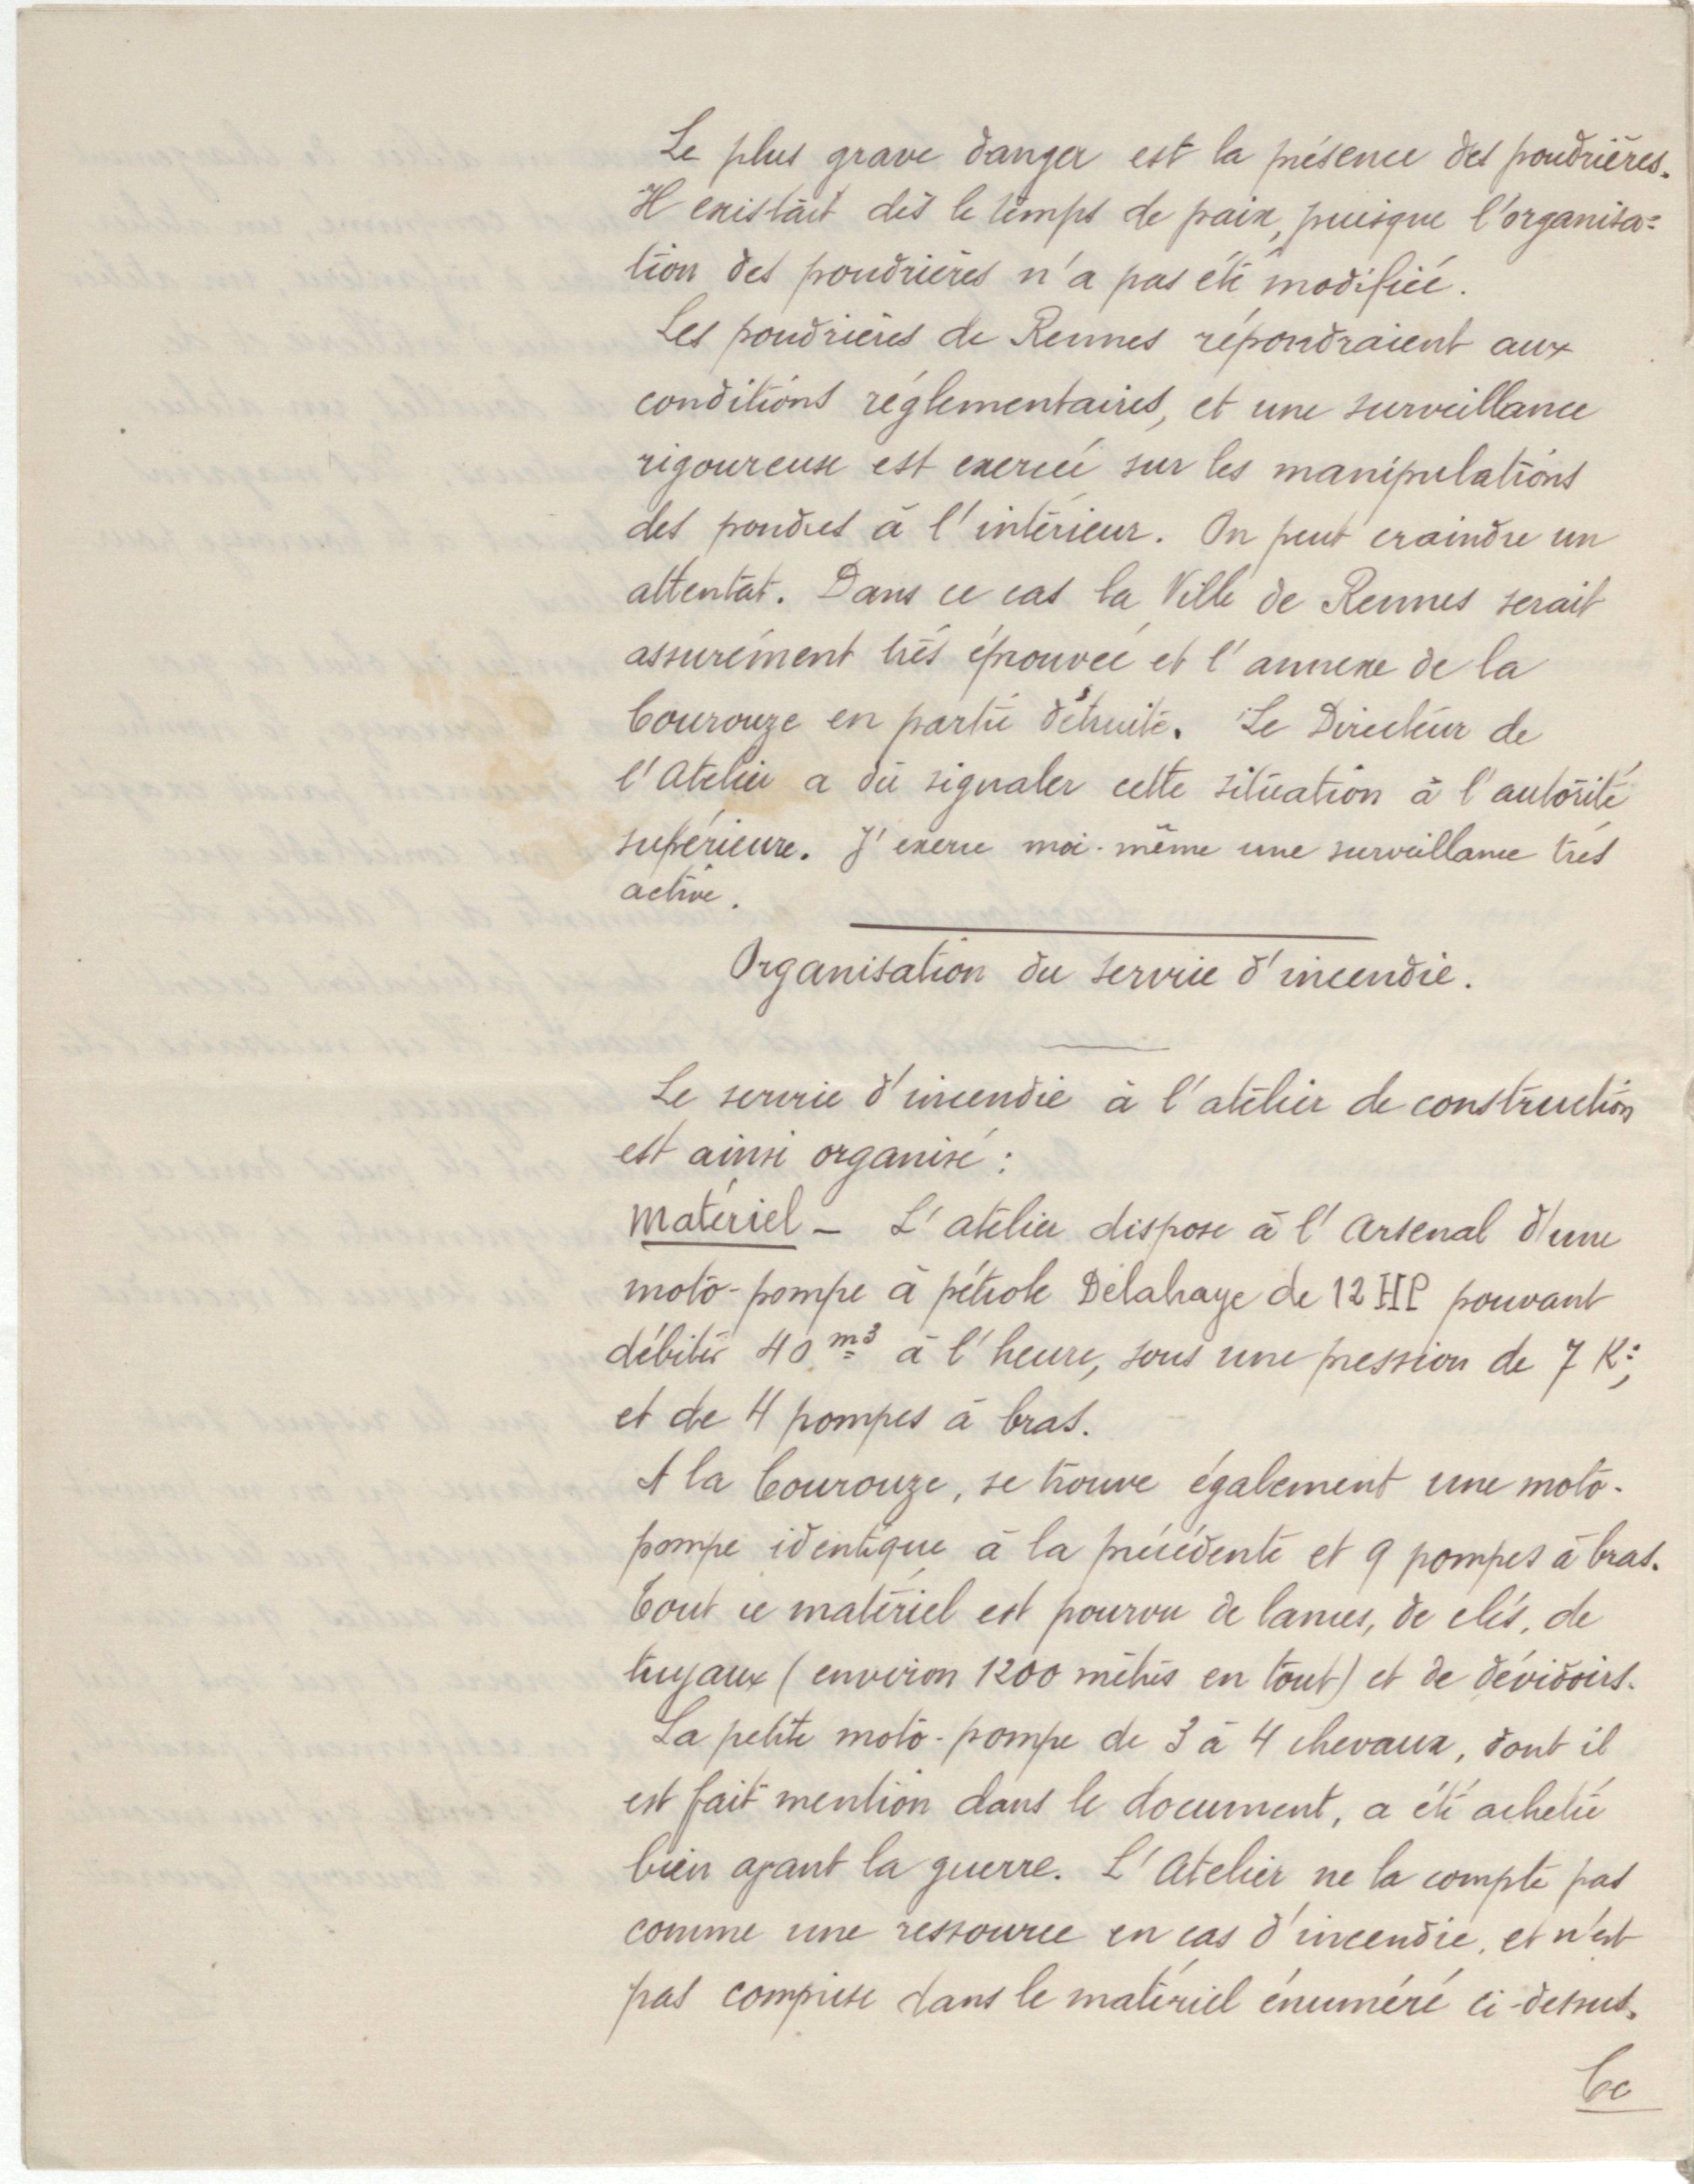 Le plus grave danger est la présence des poudrières.
Il existait dès le temps de paix, puisque l'organisa=
tion des poudrières n'a pas été modifiée.
Les poudrières de Rennes répondraient aux
conditions réglementaires, et une surveillance
rigoureuse est exercée sur les manipulations
des poudres à l'intérieur. On peut craindre un
attentat. Dans ce cas la Ville de Rennes serait
assurément très éprouvée et l'annexe de la
Courouze en partie détruite. Le Directeur de
l'Atelier a dû signaler cette situation à l'autorité
supérieure. J'exerce moi-même une surveillance très
active.
Organisation du service d'incendie.
Le service d'incendie à l'atelier de construction
est ainsi organisé :
Matériel - L'atelier dispose à l'Arsenal d'une
moto-pompe à pétrole Delahaye de 12 HP pouvant
débiter 40 m3 à l'heure, sous une pression de 7 K°;
et de 4 pompes à bras.
A la Courouze, se trouve également une moto-
pompe identique à la précédente et 9 pompes à bras.
Tout ce matériel est pourvu de lances, de clés, de
tuyaux (environ 1200 mètres en tout) et de dévidoirs.
La petite moto-pompe de 3 à 4 chevaux, dont il
est fait mention dans le document, a été achetée
bien avant la guerre. L'Atelier ne la compte pas
comme une ressource en cas d'incendie, et n'est
pas comprise dans le matériel énuméré ci-dessus.
Ce